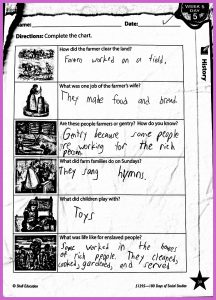 WEEK 5
DAY
5
Name: Date:
Directions: Complete the chart.
History
How did the farmer clear the land?
Farmers worked on a field.
What was one job of the farmer's wife?
They make food and bread.
Are these people farmers or gentry? How do you know?
Gentry because some people
are working for the rich
person
What did farm families do on Sundays?
They sang hymns.
What did children play with?
Toys
What was life like for enslaved people?
Some worked in the homes
of rich people. They cleaned,
cooked, gardened, and served
© Shell Education
51395—180 Days of Social Studies